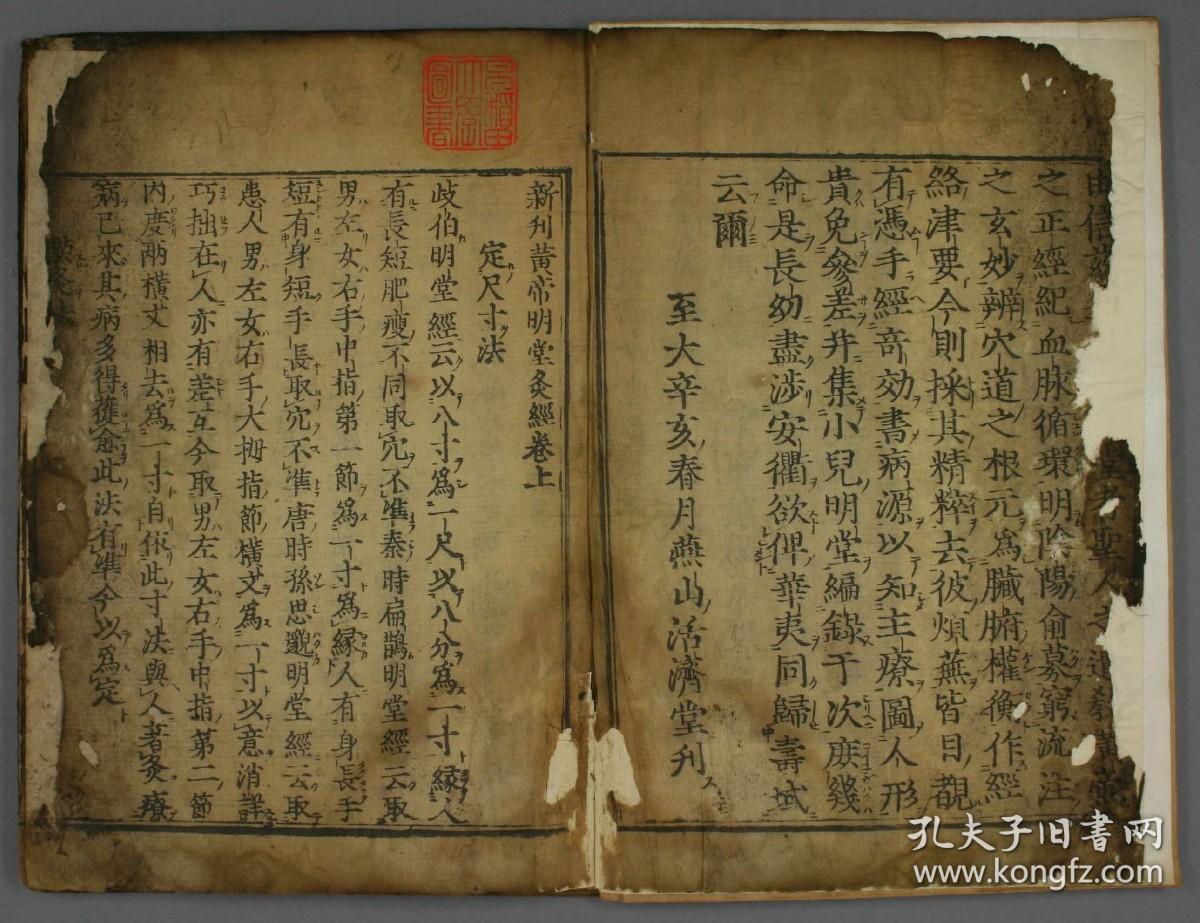 由信
聖人之遺教黄帝
之正經紀血脉循環明陰陽俞募窮流注
之玄妙辨穴道之根元為臟腑權衡作經
絡津要今則採其精粹去彼煩蕪皆目覩
有憑手經奇効書病源以知主療圖人形
貴免參差并集小兒明堂編錄于次庶幾
命是長幼盡涉安衢欲俾華夷同歸壽域
云爾
至大辛亥春月燕山活濟堂刋
新刋黄帝明堂灸經卷上
定尺寸法
岐伯明堂經云以八寸為一尺以八分為一寸緣人
有長短肥瘦不同取穴不準秦時扁鵲明堂經云取
男左女右手中指第一節為一寸為緣人有身長手
短有身短手長取穴不準唐時孫思邈明堂經云取
患人男左女右手大拇指節橫文為一寸以意消詳
巧拙在人亦有差互今取男左女右手中指第二節
內度兩橫文相去為一寸自依此寸法與人著灸療
病已來其病多得獲愈此法有準今以為定
孔夫子旧书网
www.kongfz.com